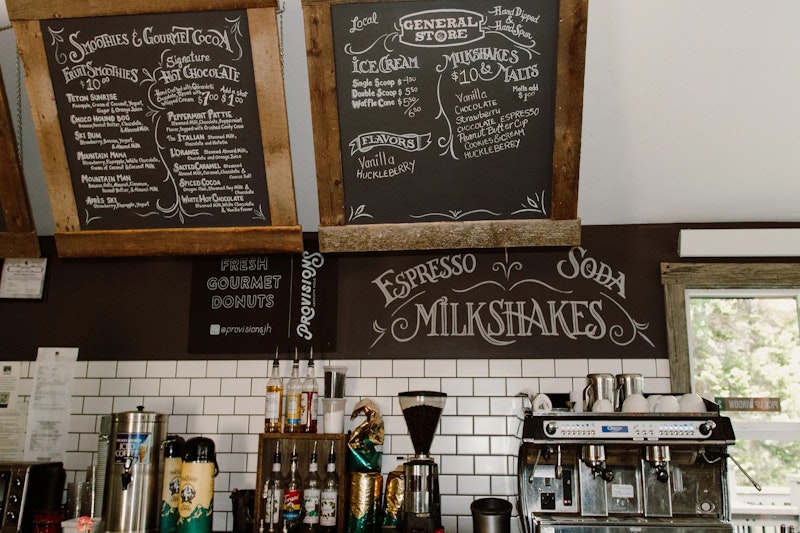 Smoothies & Gourmet Cocoa
Fruit Smoothies
$10.00
Teton Sunrise
Pineapple, Cream of Coconut, Yogurt,
Ginger & Orange Juice
Choco Hound Dog
Banana, Peanut Butter, Chocolate
& Almond Milk
Ski Bum
Strawberry, Banana, Yogurt
& Almond Milk
Mountain Mama
Strawberry, Pineapple, White Chocolate,
Cream of Coconut & Coconut Milk
Mountain Man
Banana, Oats, Almond, Cinnamon,
Peanut Butter, & Almond Milk
Après Ski
Strawberry, Pineapple, Yogurt
Signature
Hot Chocolate
Hand Crafted with Ghirardelli
Chocolate, Topped with
Whipped Cream
$7.00
Add a Shot
$1.00
Peppermint Pattie
Steamed Milk, Chocolate, Peppermint
Flavor, Topped with Crushed Candy Cane
The Italian
Steamed Milk,
Chocolate and Nutella
L'Orange
Steamed Almond Milk,
Chocolate and Orange Juice
Salted Caramel
Steamed
Milk, Caramel, Chocolate &
Course Salt
Spiced Cocoa
Oregon Chai, Steamed Soy Milk &
Chocolate
White Hot Chocolate
Steamed Milk, White Chocolate
& Vanilla Flavor
Local
GENERAL
STORE
Hand Dipped
& Hand Spun
Ice Cream
Single Scoop $4.50
Double Scoop $5.50
Waffle Cone $5.50
6.50
Flavors
Vanilla
Huckleberry
Milkshakes
$10 & Malts
Malts add
$1.00
Vanilla
Chocolate
Strawberry
Chocolate Espresso
Peanut Butter Cup
Cookies & Cream
Huckleberry
FRESH
GOURMET
DONUTS
@provisionsjh
PROVISIONS
Espresso
Soda
Milkshakes
ICED
COFFEE
PICK UP WINDOW